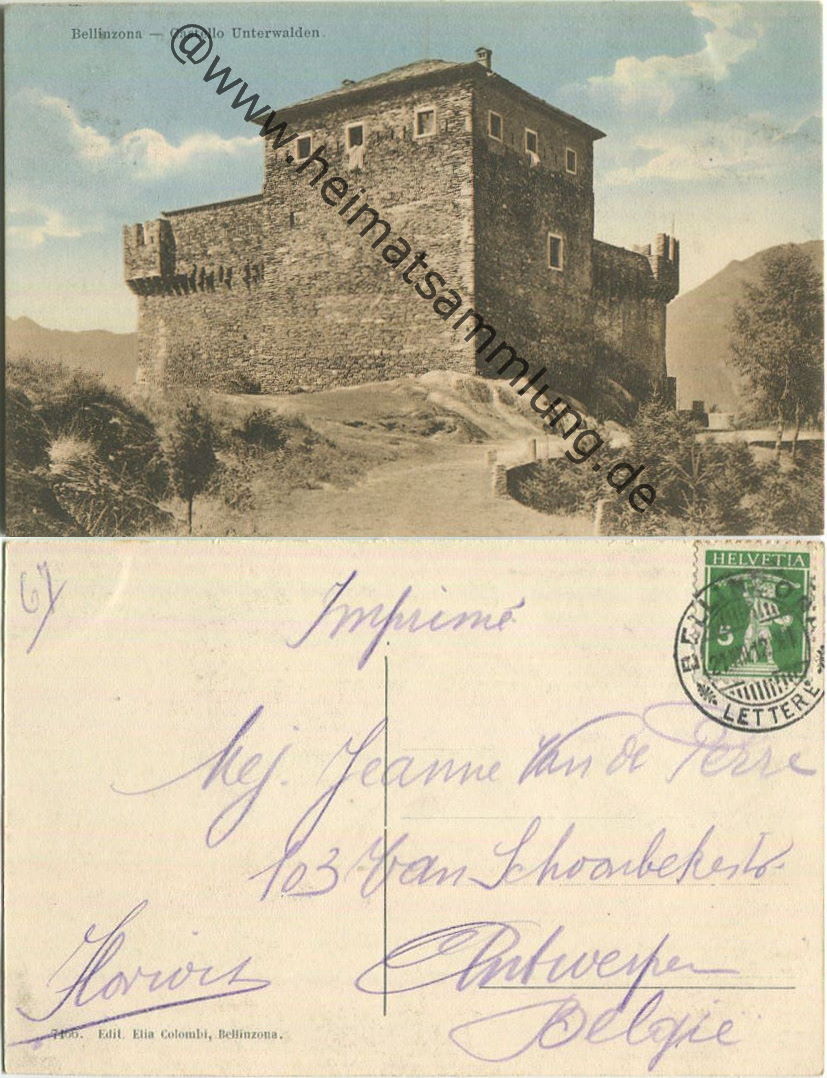 Bellinzona — Castello Unterwalden.
@www.heimatsammlung.de
67
Imprimé
HELVETIA
5
BELLINZONA
LETTERE
Mej. Jeanne Van de Perre
103 Van Schoonbekestr.
Antwerpen
Belgie
7466. Edit. Elia Colombi, Bellinzona.